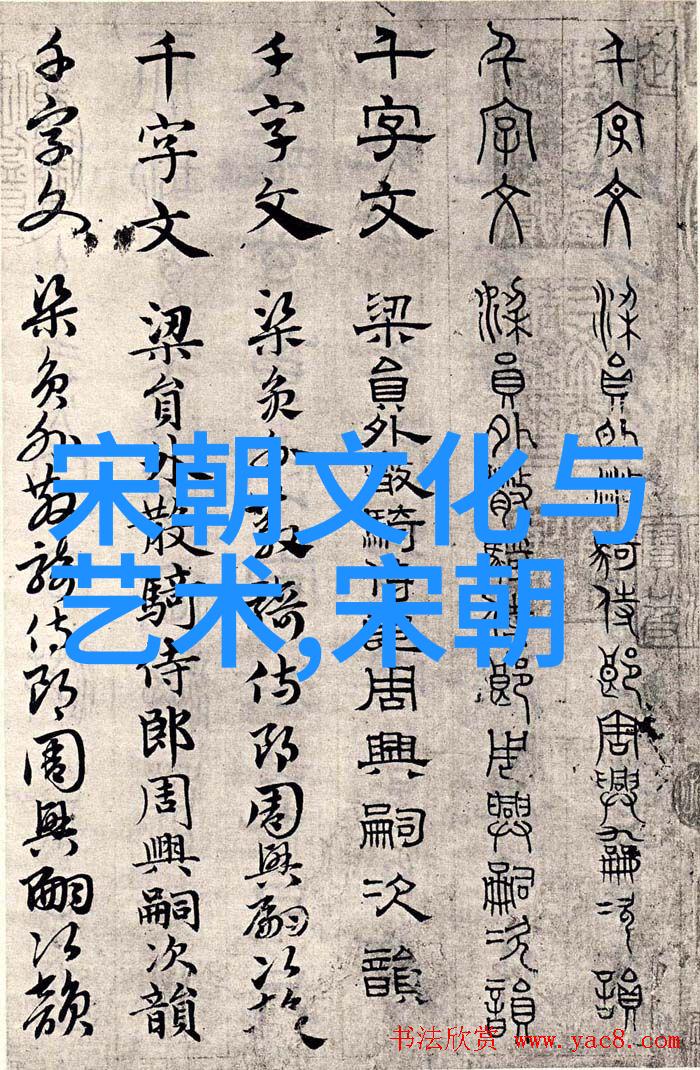 千字文 梁員外散騎侍郎周興嗣次韻
千字文 梁員外散騎侍郎周興嗣次韻
千字文 梁員外散騎侍郎周興嗣次韻
千字文 梁員外散騎侍郎周興嗣次韻
千字文 梁員外散騎侍郎周興嗣次韻
千字文 梁員外散騎侍郎周興嗣次韻
宋朝文化与
艺术,宋朝
书法欣赏 www.yac8.com